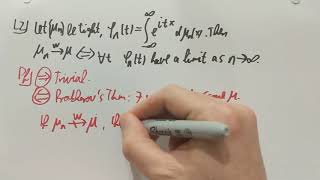 L2) Let {μₙ} be tight, φₙ(t) = ∫_{-∞}^{∞} e^{itx} dμₙ(x). Then
μₙ →ʷ μ ⟺ ∀t φₙ(t) have a limit as n→∞.
Pf) ⟹ Trivial.
⟸ Prokhorov's Thm: ∃ μ.
If μₙ ↛ʷ μ,